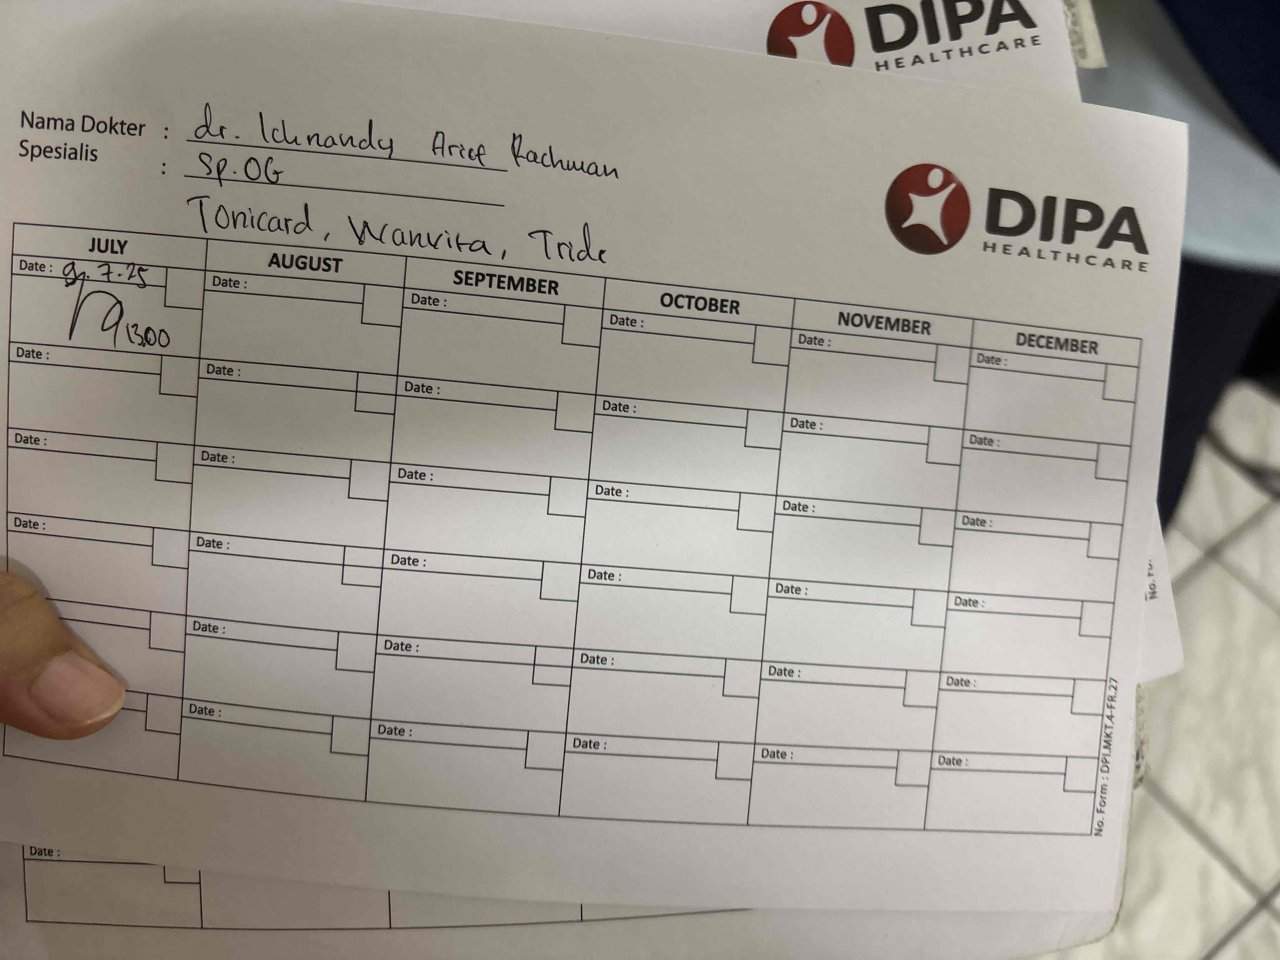 DIPA
HEALTHCARE
Nama Dokter : dr. Ichnandy Arief Rachman
Spesialis : Sp.OG
Tonicard, Wanvita, Tride
DIPA
HEALTHCARE
JULY AUGUST SEPTEMBER OCTOBER NOVEMBER DECEMBER
Date : 7-25 Date : Date : Date : Date : Date :
13.00
Date : Date : Date : Date : Date : Date :
Date : Date : Date : Date : Date : Date :
Date : Date : Date : Date : Date : Date :
Date : Date : Date : Date : Date :
Date : Date : Date : Date : Date :
No. Form : DPI.MKT.4-FR.27
No. Fo
Date :